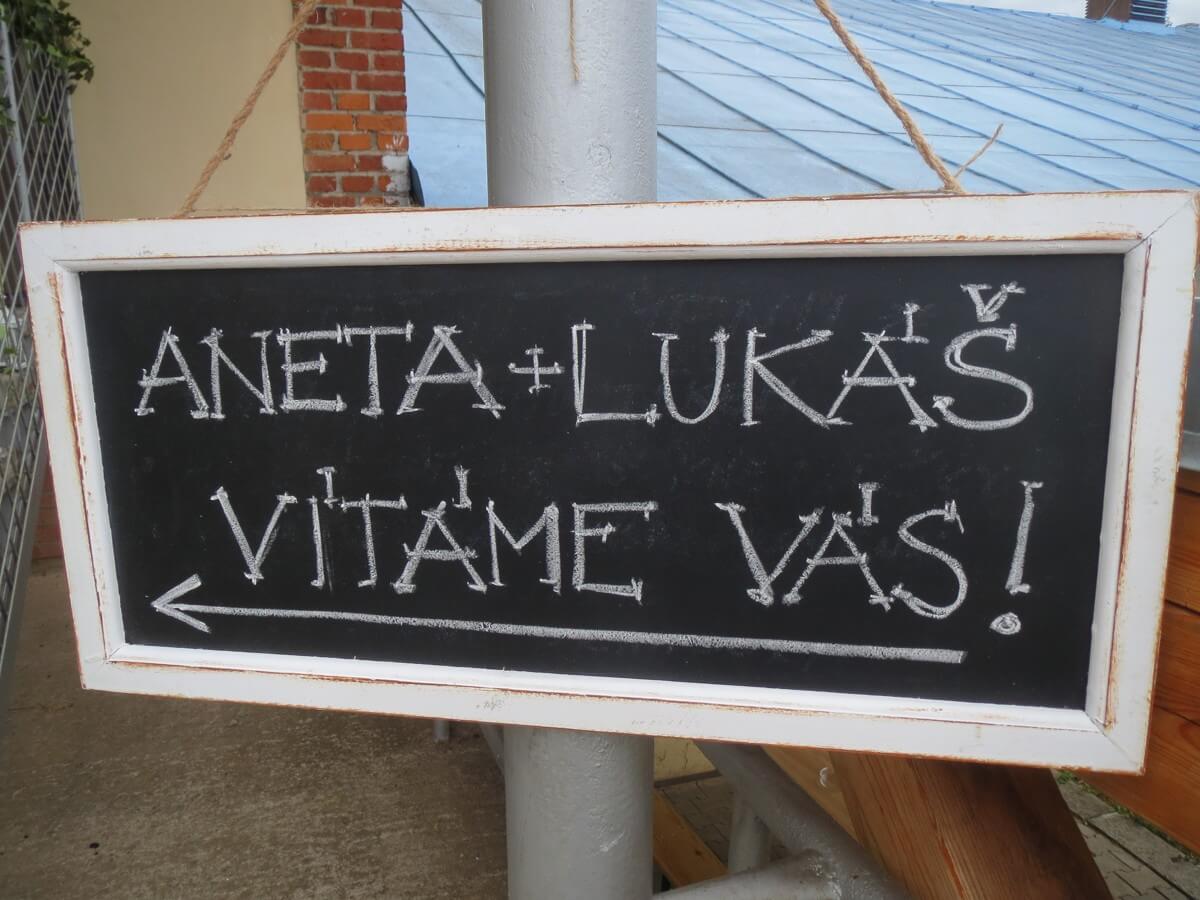 ANETA + LUKÁŠ
VÍTÁME VÁS!